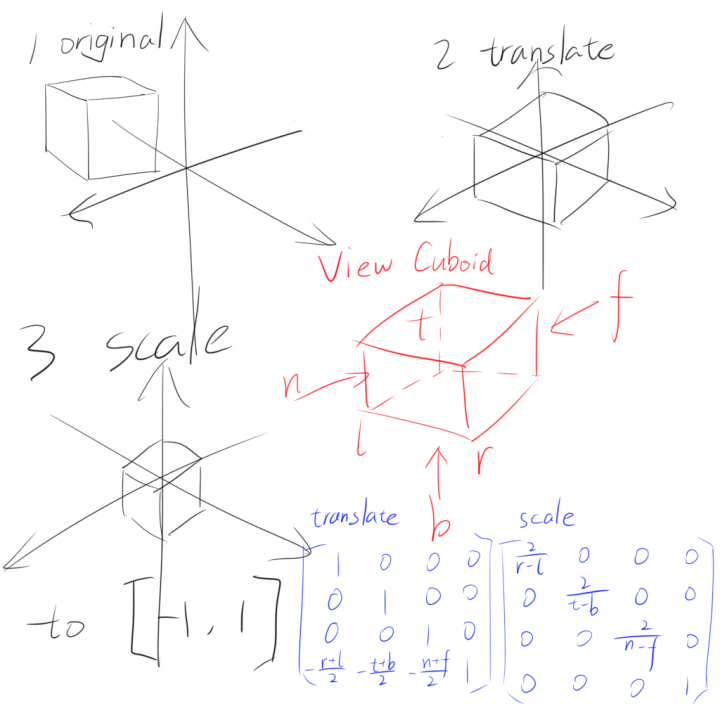 1 original
2 translate
View Cuboid
t
f
n
l
r
b
3 scale
to [-1, 1]
translate
1 0 0 0
0 1 0 0
0 0 1 0
-\frac{r+l}{2} -\frac{t+b}{2} -\frac{n+f}{2} 1
scale
\frac{2}{r-l} 0 0 0
0 \frac{2}{t-b} 0 0
0 0 \frac{2}{n-f} 0
0 0 0 1